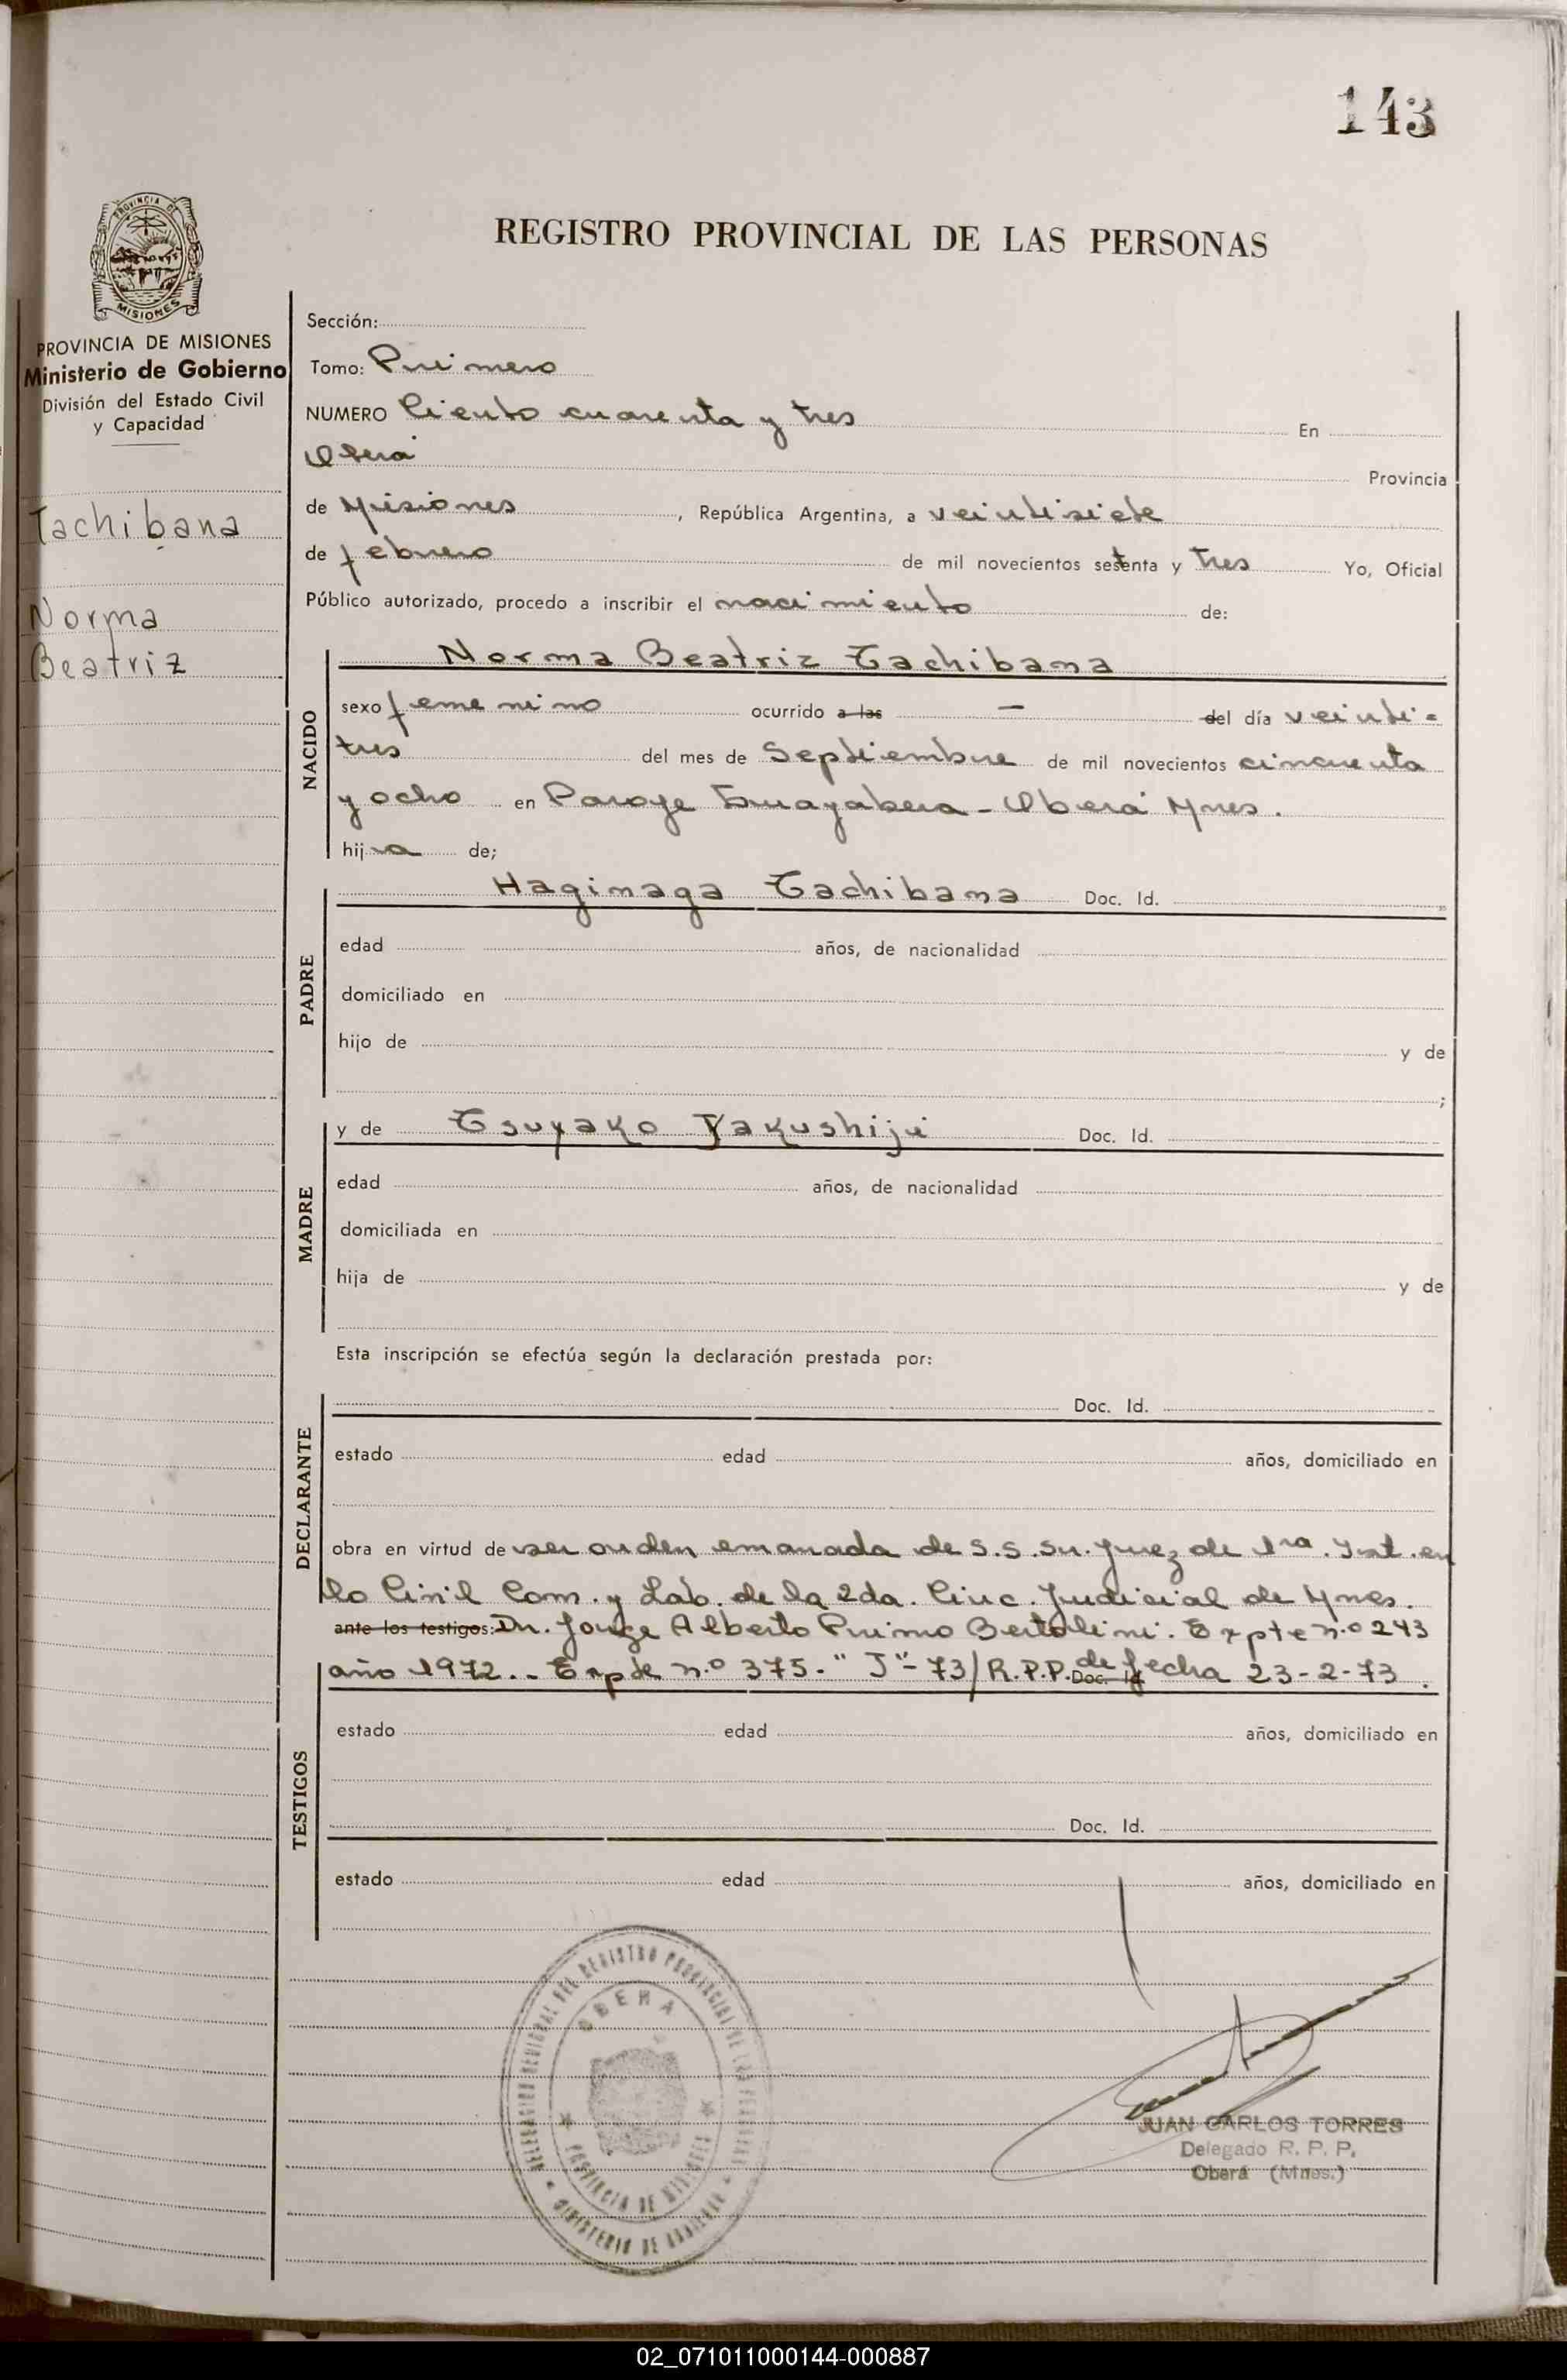 143
PROVINCIA DE
MISIONES
PROVINCIA DE MISIONES
Ministerio de Gobierno
División del Estado Civil
y Capacidad
Tachibana
Norma
Beatriz
REGISTRO PROVINCIAL DE LAS PERSONAS
Sección:
Tomo: Primero
NUMERO Ciento cuarenta y tres En
Oberá Provincia
de Misiones, República Argentina, a veintisiete
de febrero de mil novecientos setenta y tres Yo, Oficial
Público autorizado, procedo a inscribir el nacimiento de:
NACIDO
Norma Beatriz Tachibana
sexo femenino ocurrido a las — del día veinti-
tres del mes de Septiembre de mil novecientos cincuenta
y ocho en Paraje Guayabera - Oberá Mnes.
hija de;
PADRE
Haginaga Tachibana Doc. Id.
edad años, de nacionalidad
domiciliado en
hijo de y de
;
MADRE
y de Tsuyako Yakushiji Doc. Id.
edad años, de nacionalidad
domiciliada en
hija de y de
Esta inscripción se efectúa según la declaración prestada por:
DECLARANTE
Doc. Id.
estado edad años, domiciliado en
obra en virtud de ser orden emanada de S.S. Sr. Juez de 1ra. Inst. en
lo Civil Com. y Lab. de la 2da. Circ. Judicial de Mnes.
ante los testigos: Dr. Jorge Alberto Primo Bertolini. Expte n.º 243
año 1972.- Expte n.º 375-"J"-73/R.P.P. Doc. Id. de fecha 23-2-73.
TESTIGOS
estado edad años, domiciliado en
Doc. Id.
estado edad años, domiciliado en
DELEGACION REGIONAL DEL REGISTRO PROVINCIAL DE LAS PERSONAS
OBERA
PROVINCIA DE MISIONES
MINISTERIO DE GOBIERNO
JUAN CARLOS TORRES
Delegado R. P. P.
Oberá (Mnes.)
02_071011000144-000887